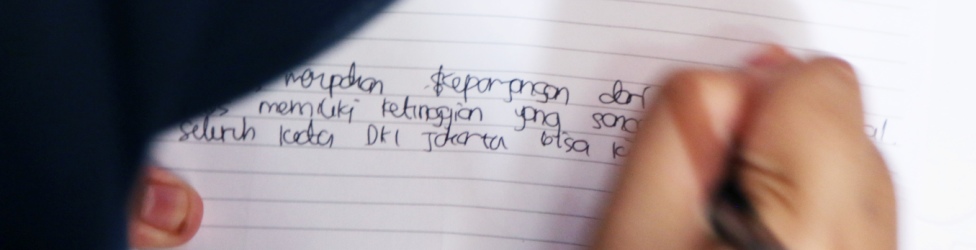 merupakan Kepanjangan dari
memiliki ketinggian yang
seluruh kota DKI Jakarta bisa